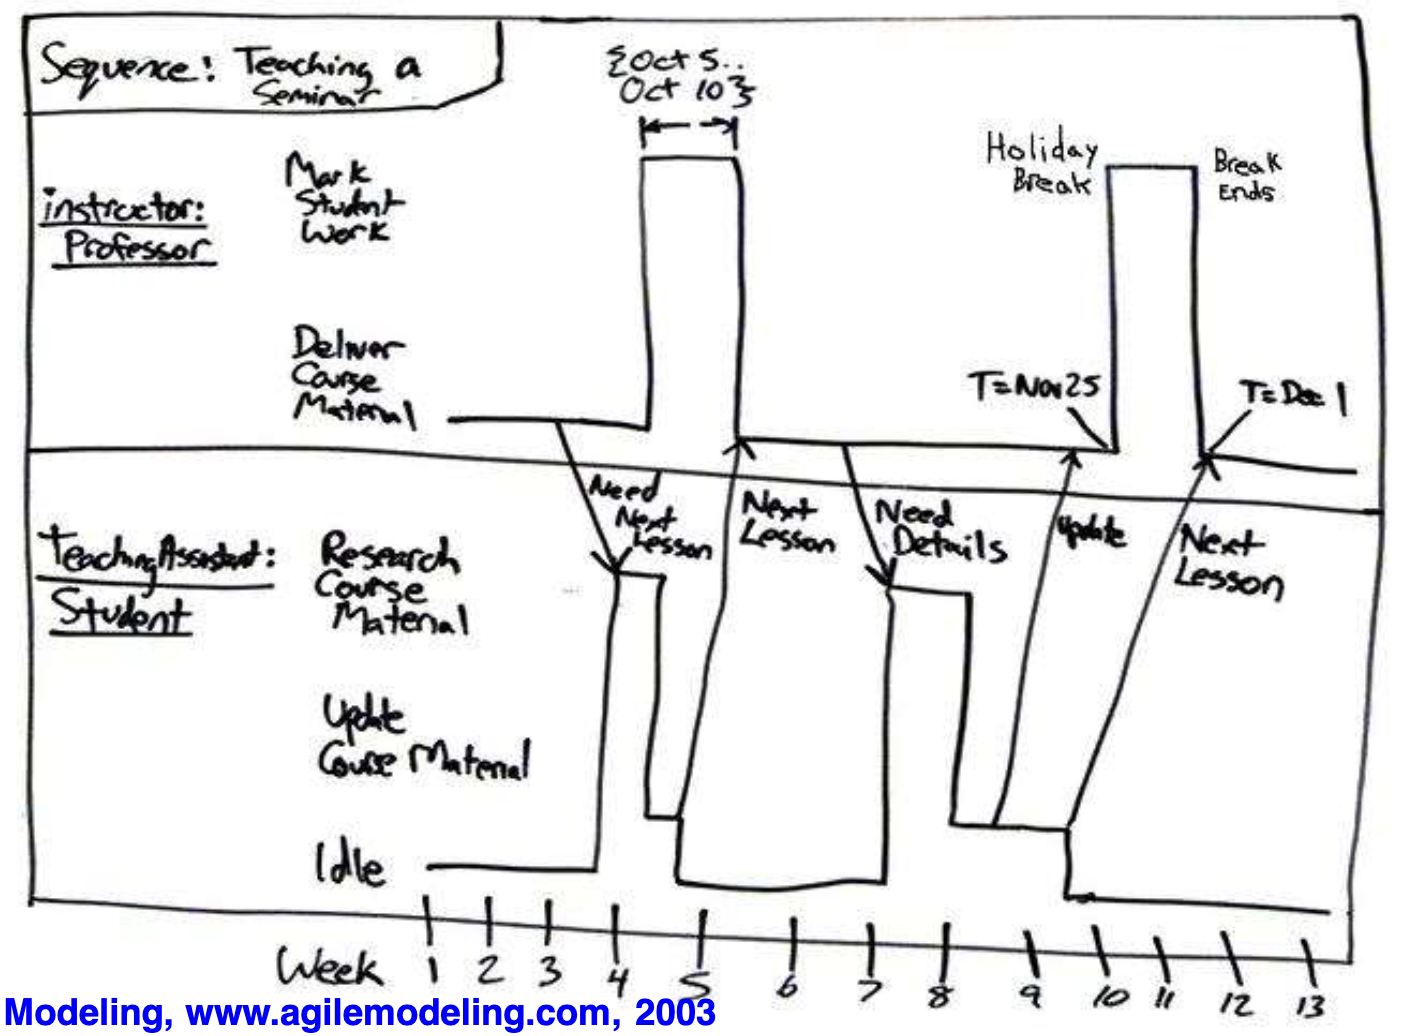 Sequence: Teaching a
Seminar
{Oct 5..
Oct 10}
Holiday
Break
Break
Ends
instructor:
Professor
Mark
Student
Work
Deliver
Course
Material
T=Nov 25
T=Dec 1
Need
Next
Lesson
Next
Lesson
Need
Details
Update
Next
Lesson
TeachingAssistant:
Student
Research
Course
Material
Update
Course Material
Idle
Week 1 2 3 4 5 6 7 8 9 10 11 12 13
Modeling, www.agilemodeling.com, 2003